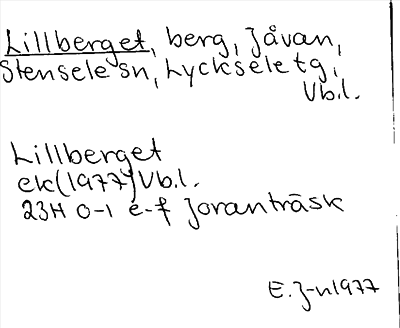 Lillberget, berg, Jåvan,
Stensele sn, Lycksele tg,
Vb.l.
Lillberget
ek(1977) Vb.l.
23H 0-1 e-f Joranträsk
E. J-n 1977